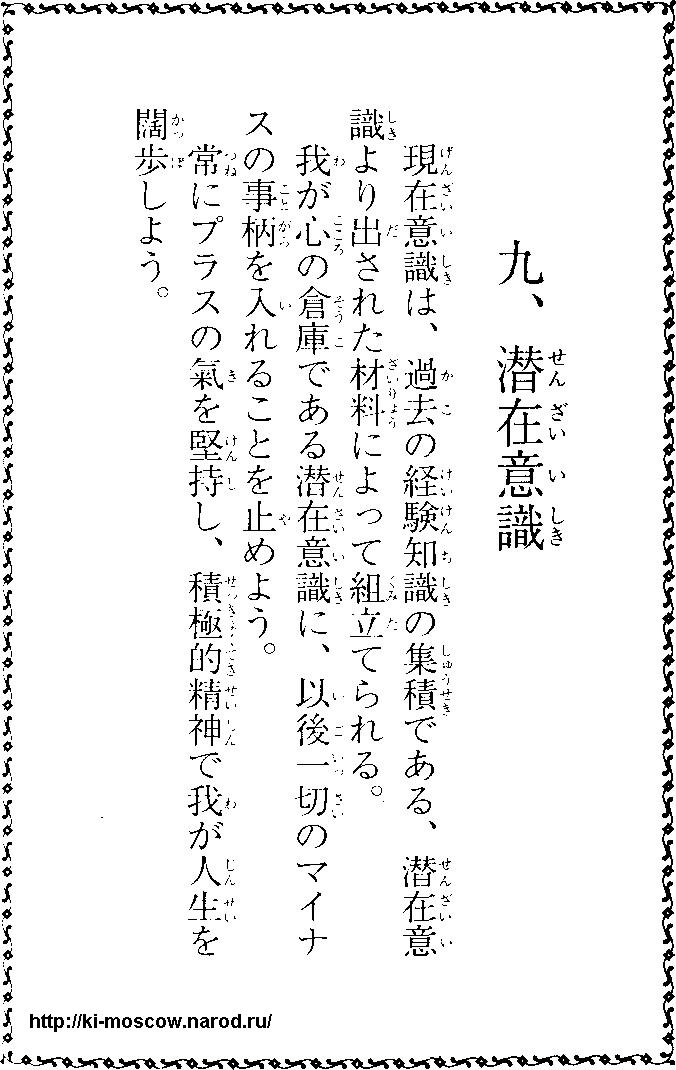 九、潜在意識
現在意識は、過去の経験知識の集積である、潜在意
識より出された材料によって組立てられる。
我が心の倉庫である潜在意識に、以後一切のマイナ
スの事柄を入れることを止めよう。
常にプラスの氣を堅持し、積極的精神で我が人生を
闊歩しよう。
http://ki-moscow.narod.ru/